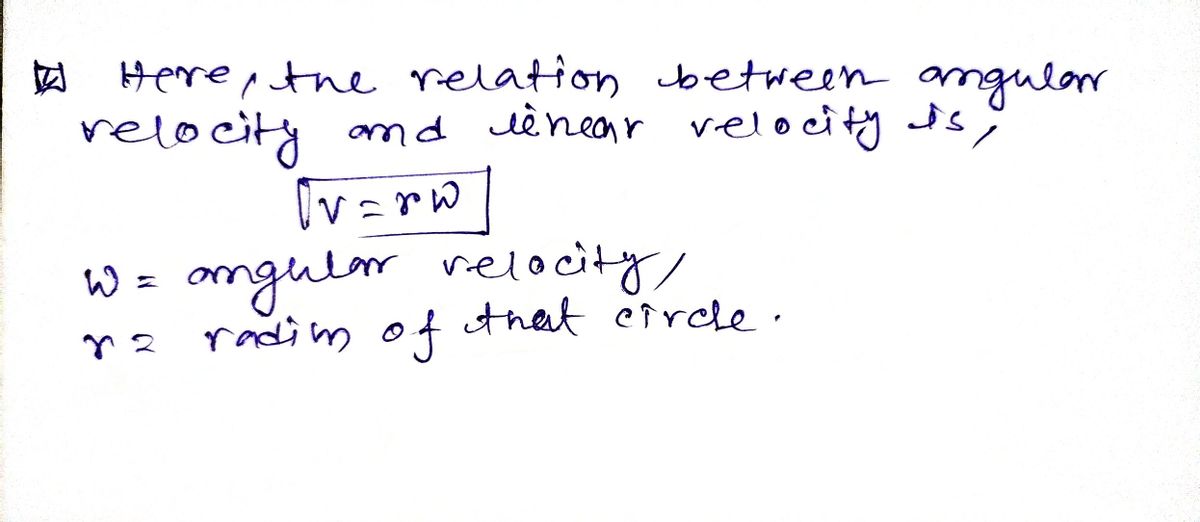 Here, the relation between angular
velocity and linear velocity is,
v = rω
ω = angular velocity,
r = radius of that circle.